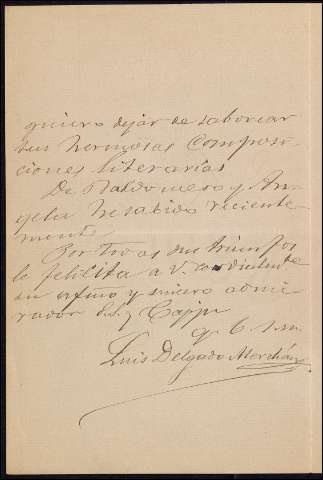 quiero dejar de saborear
sus hermosas composi-
ciones literarias
De Baldomero y An-
gela he sabido reciente-
mente
Por todos sus triunfos
le felicita a V. cordialmte
su afmo y sincero admi-
rador S.S. y Capp
q b s m
Luis Delgado Merchán